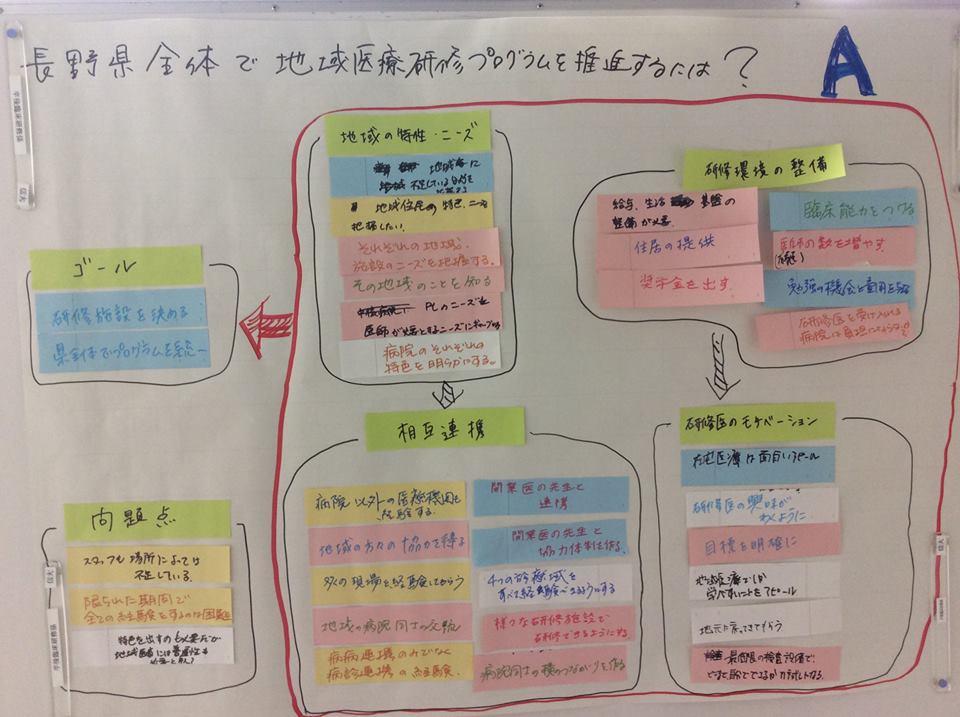 長野県全体で地域医療研修プログラムを推進するには?
A
地域の特性・ニーズ
地域に
不足している
地域住民の特色、ニーズ
把握したい。
それぞれの地域、
施設のニーズを把握する。
その地域のことを知る
のニーズと
医師が必要とするニーズにギャップが
病院のそれぞれの
特色を明らかにする。
研修環境の整備
給与、生活 基盤の
整備が必要
住居の提供
奨学金を出す
臨床能力をつける
医師の数を増やす
勉強の機会と費用を
研修医を受け入れる
病院は負担にならない
ゴール
研修施設を決める
県全体でプログラムを統一
相互連携
病院以外の医療機関を
経験する。
地域の方々の協力を得る
多くの現場を経験してもらう
地域の病院同士の交流
病病連携のみでなく
病診連携の経験。
開業医の先生と
連携
開業医の先生と
協力体制を作る。
4つの診療域を
すべて経験できるようにする
様々な研修施設で
研修できるようにする
病院同士の横のつながりを作る
研修医のモチベーション
在宅医療は面白いアピール
研修医の興味が
わくように
目標を明確に
地域医療でしか
学べないことをアピール
地元に戻ってきてもらう
最低限の検査設備で、
問題点
スタッフも場所によっては
不足している。
限られた期間で
全ての経験をするのは困難
特色を出すのも必要だが
地域医療には普遍性も
卒後臨床研修係
信大
信大
卒後臨床研修係
信大